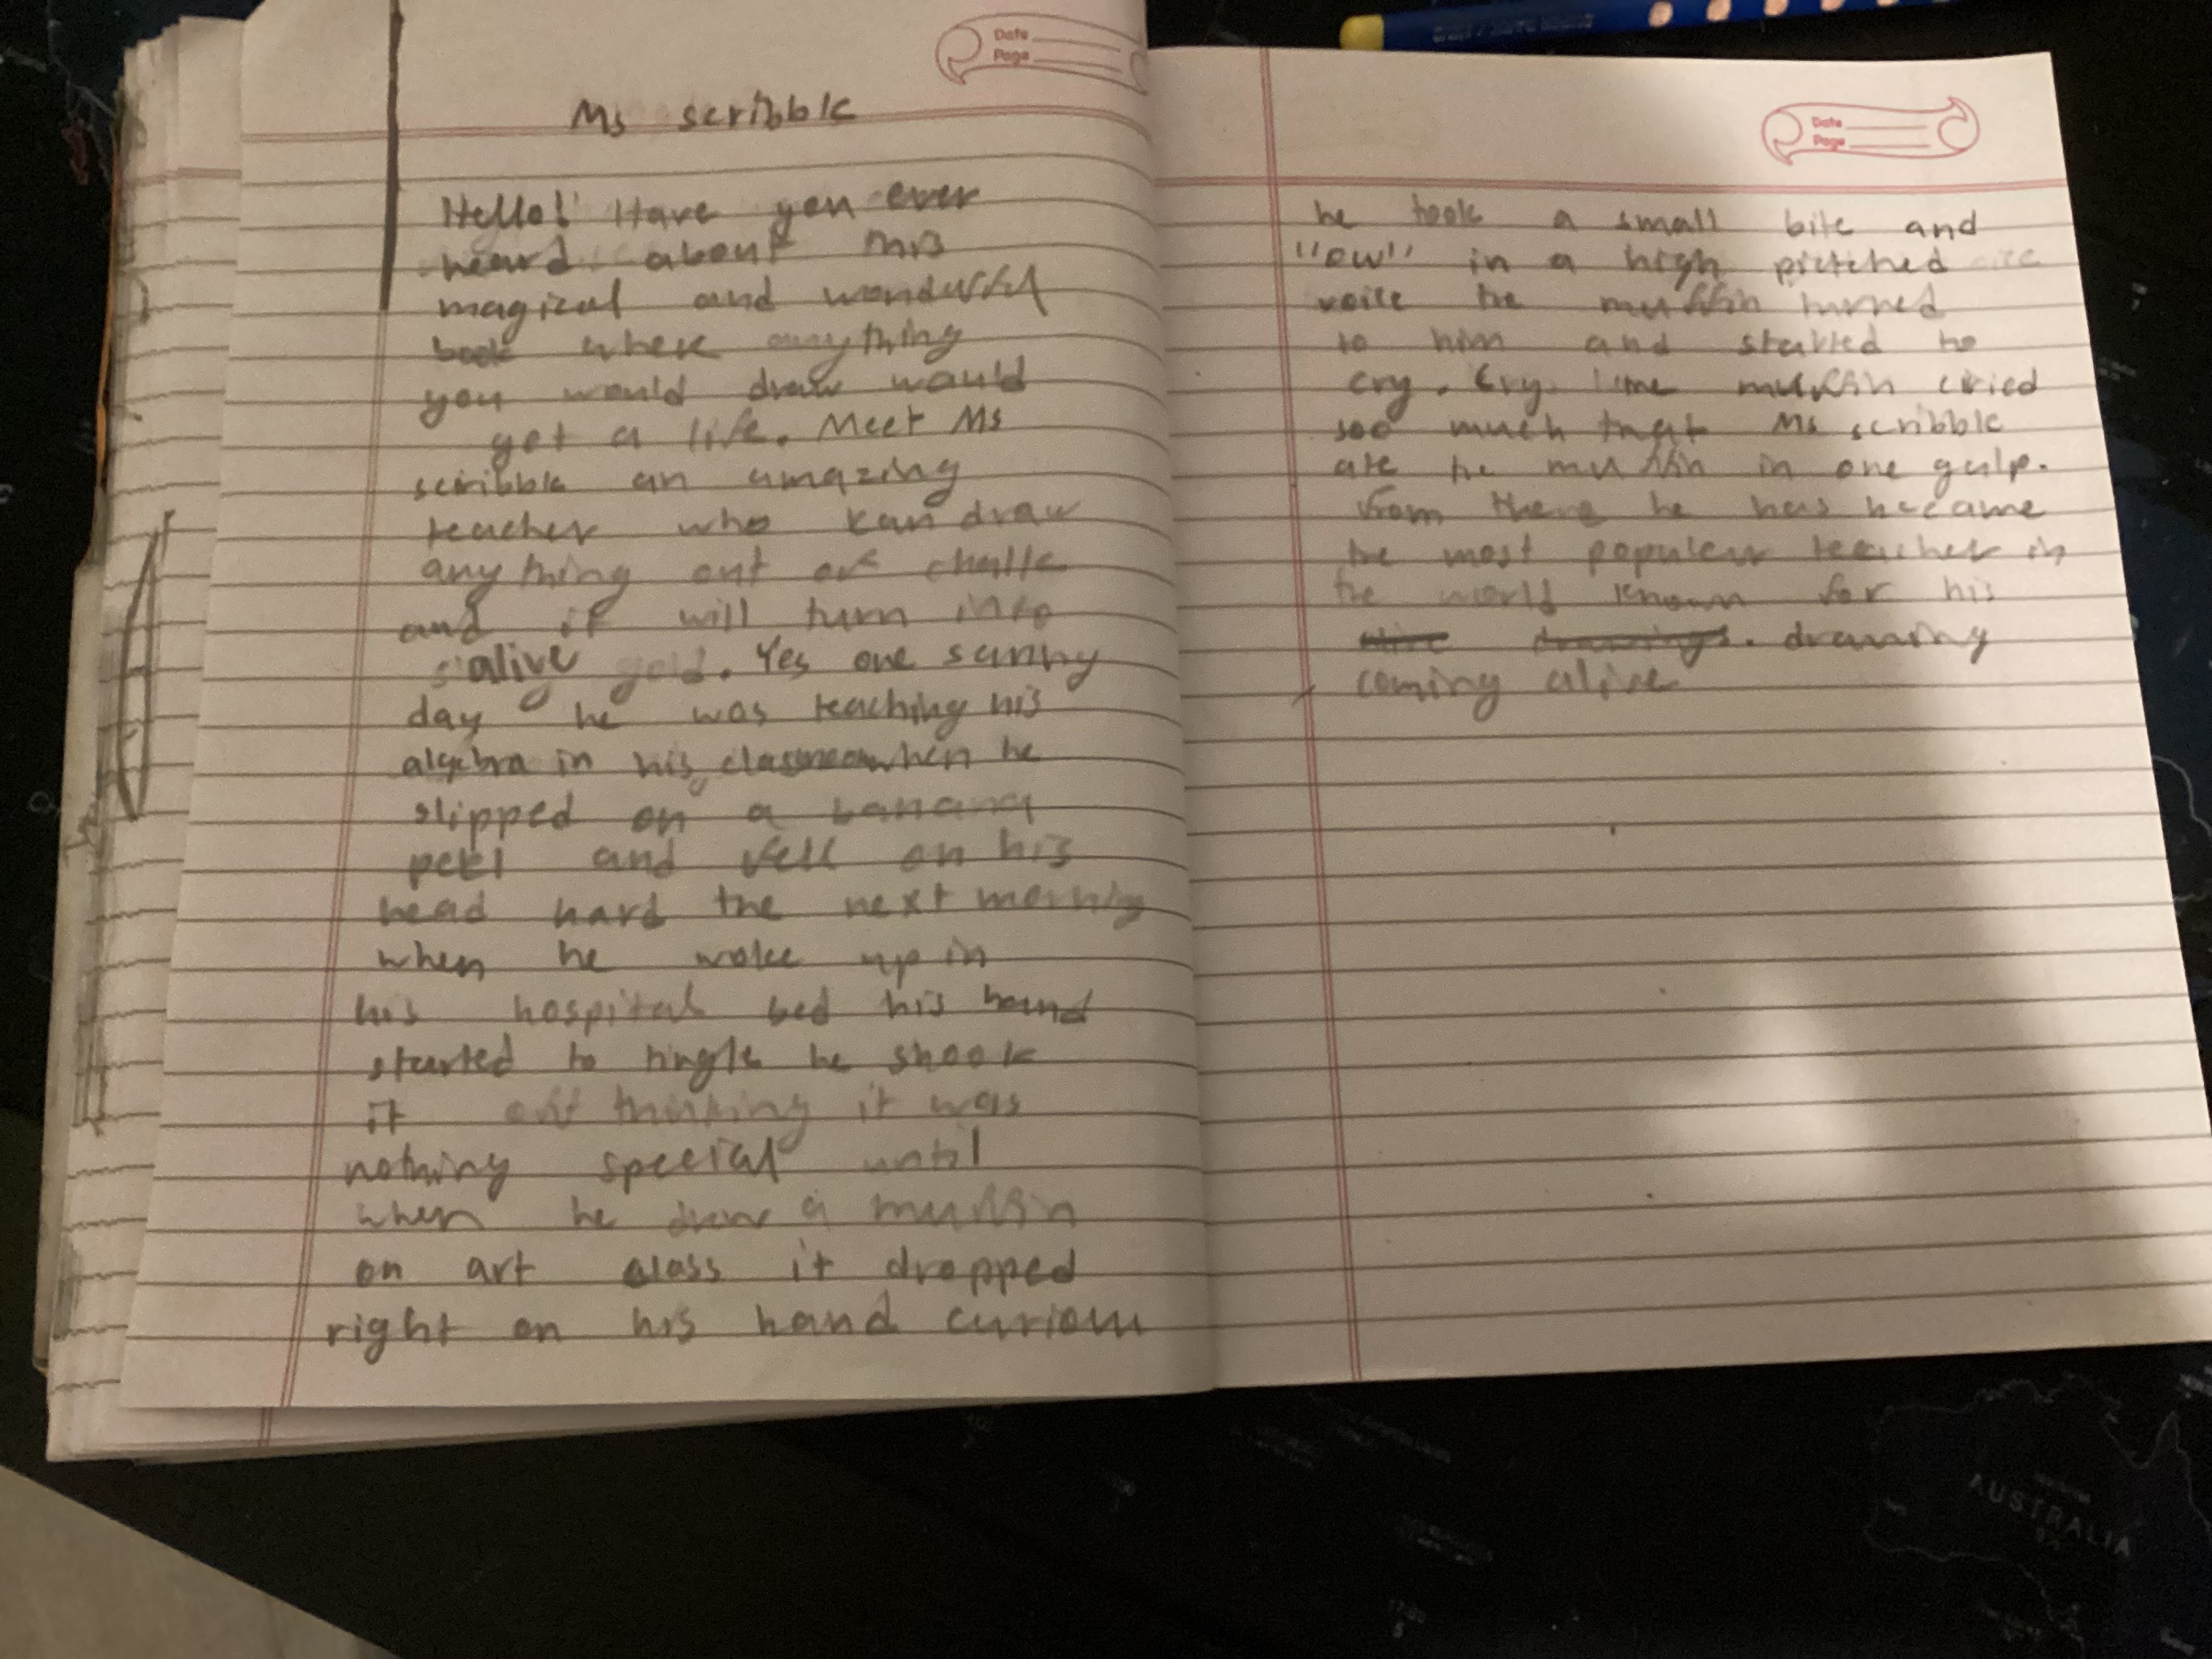 Date
Page
Ms scribble
Hello! Have you ever
heard about this
magical and wonderful
book where anything
you would draw would
get a life. Meet Ms
scribble an amazing
teacher who kan draw
anything out of chalk
and it will turn into
alive gold. Yes one sunny
day he was teaching his
algebra in his classroom when he
slipped on a banana
peel and fell on his
head hard the next morning
when he woke up in
his hospital bed his hand
started to tingle he shook
it off thinking it was
nothing special until
when he draw a muffin
on art class it dropped
right on his hand curious
Date
Page
he took a small bite and
"ow" in a high pictched
voice he muffin turned
to him and started to
cry. Cry. muffin cried
soo much that Ms scribble
ate he muffin in one gulp.
from there he has became
the most popular teacher in
the world known for his
drawings. drawing
coming alive
AUSTRALIA